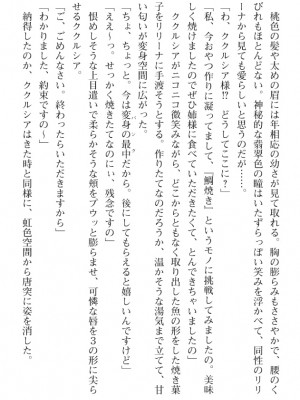 桃色の髪や太めの眉には年相応の幼さが見て取れる。胸の膨らみもささやかで、腰のく
びれもほとんどない。神秘的な翡翠色の瞳はいたずらっぽい笑みを浮かべて、同性のリリ
ーナから見ても愛らしいと思うのだが……。
「わ、ククルシア様!?　どうしてここに?」
「私、今おやつ作りに凝ってまして、『鯛焼き』というモノに挑戦してみましたの。美味
しく焼けましたのでぜひ姉様に食べていただきたくて、とんできちゃいましたの」
ククルシアがニコニコ微笑みながら、どこからともなく取り出した魚の形をした焼き菓
子をリリーナに手渡そうとする。作りたてなのだろうか、温かそうな湯気まで立てて、甘
い匂いが変身空間に広がった。
「ちょ、ちょっと。今は変身の最中だから。後にしてもらえると嬉しいんですけど」
「ええーっ。せっかく焼きたてなのにぃ、残念ですの」
恨めしそうな上目遣いで柔らかそうな頬をプウッと膨らませ、可憐な唇を３の形に尖ら
せるククルシア。
「ご、ごめんなさい。終わったらいただきますから」
「わかりました、約束ですの〜」
納得したのか、ククルシアはきた時と同様に、虹色空間から唐突に姿を消した。